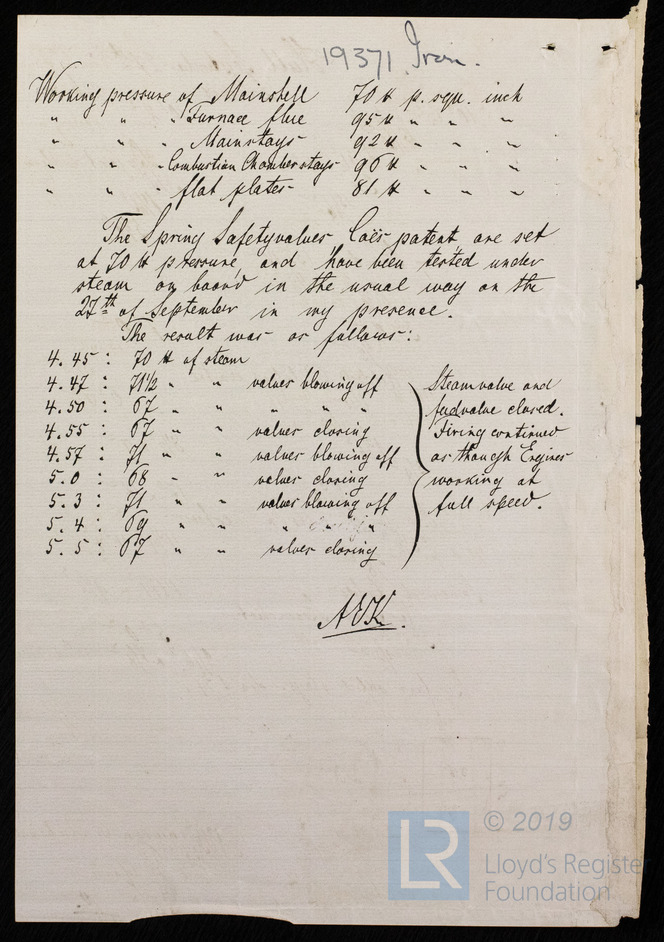 19371 Iron.
Working pressure of Mainshell 70 lb p. squ. inch
" " " Furnace flue 95 lb " " "
" " " Mainstays 92 lb " " "
" " " Combustion Chamberstays 96 lb " " "
" " " flat plates 81 lb " " "
The Spring Safetyvalves Coës patent are set
at 70 lb pressure, and have been tested under
steam on board in the usual way on the
27th of September in my presence.
The result was as follows:
4. 45 : 70 lb of steam
4. 47 : 71 1/2 " " valves blowing off
4. 50 : 67 " " " " "
4. 55 : 67 " " valves closing
4. 57 : 71 " " valves blowing off
5. 0 : 68 " " valves closing
5. 3 : 71 " " valves blowing off
5. 4 : 69 " " " " "
5. 5 : 67 " " valves closing
Steamvalve and
feedvalve closed.
Firing continued
as though Engines
working at
full speed.
AEK.
LR
© 2019
Lloyd's Register
Foundation